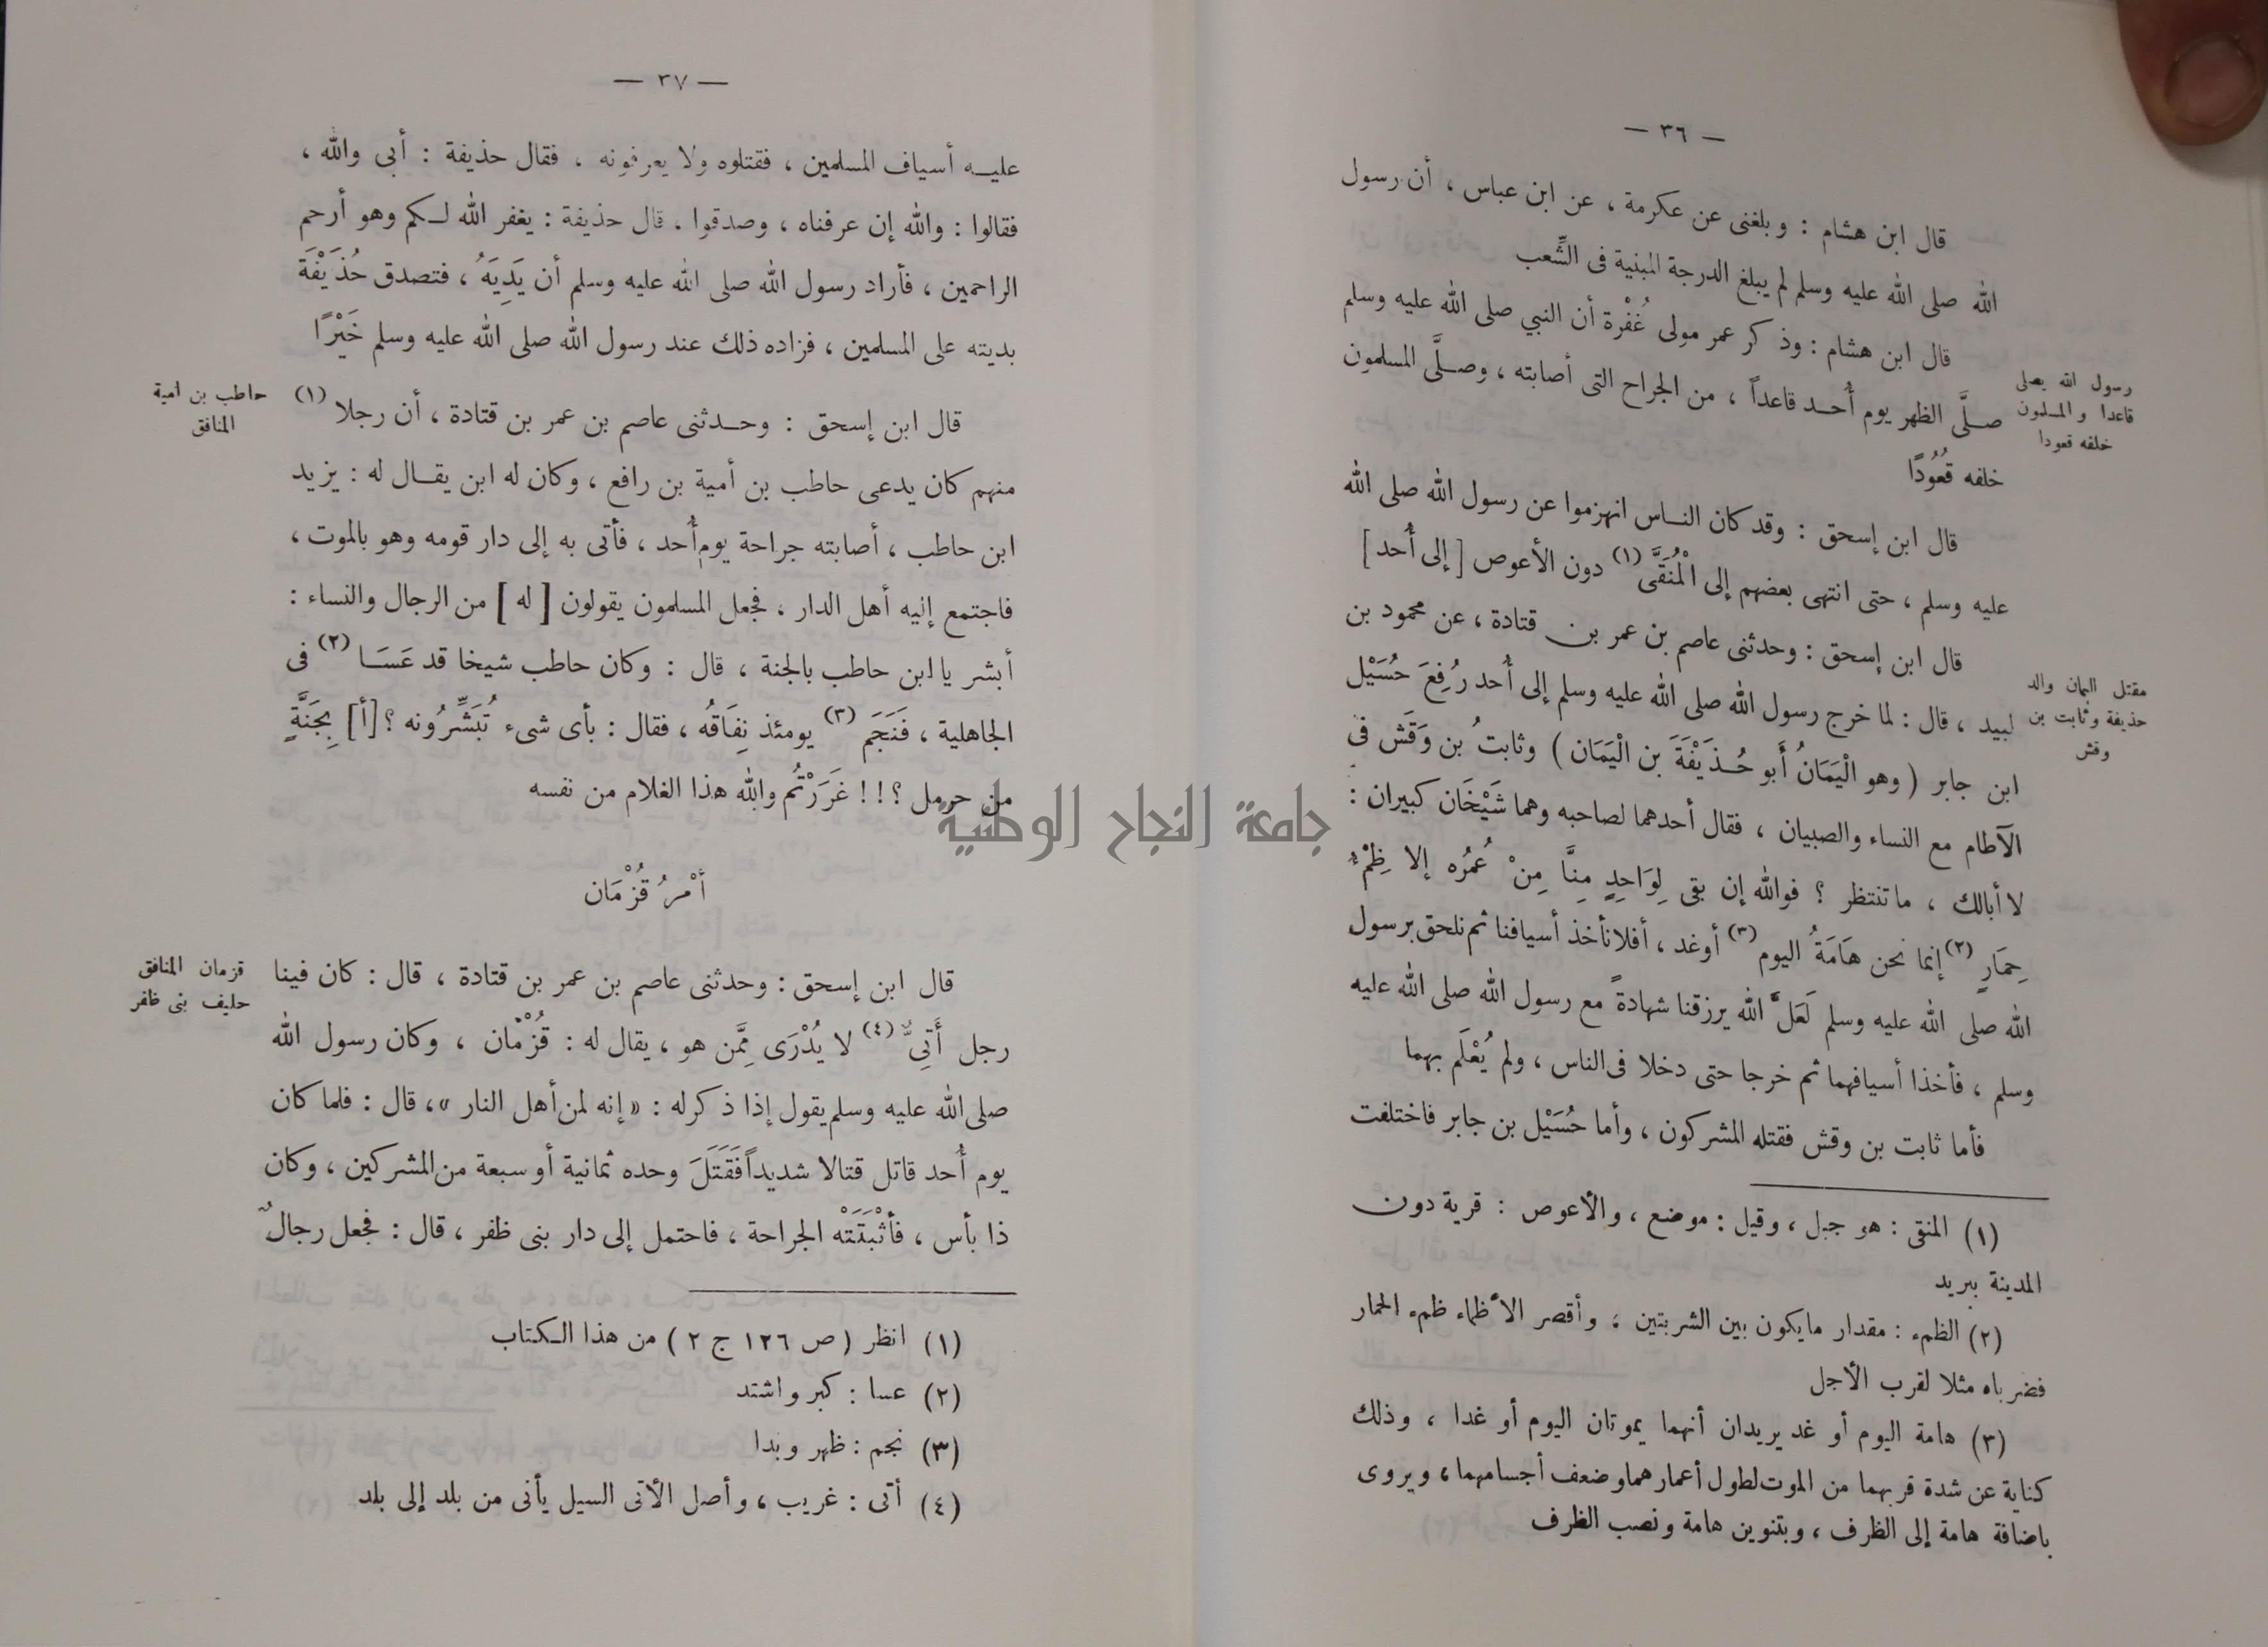 — ٣٦ —
قال ابن هشام : وبلغنى عن عكرمة ، عن ابن عباس ، أن رسول
الله صلى الله عليه وسلم لم يبلغ الدرجة المبنية فى الشِّعب
قال ابن هشام : وذكر عمر مولى غُفْرة أن النبي صلى الله عليه وسلم
صلَّى الظهر يوم أُحد قاعداً ، من الجراح التى أصابته ، وصلَّى المسلمون
خلفه قُعُودًا
رسول الله يصلى
قاعدا والمسلمون
خلفه قعودا
قال ابن إسحق : وقد كان الناس انهزموا عن رسول الله صلى الله
عليه وسلم ، حتى انتهى بعضهم إلى الْمُنَقَّى (١) دون الأعوص [ إلى أُحد ]
قال ابن إسحق : وحدثنى عاصم بن عمر بن قتادة ، عن محمود بن
لبيد ، قال : لما خرج رسول الله صلى الله عليه وسلم إلى أُحد رُفِعَ حُسَيْل
ابن جابر ( وهو الْيَمَانُ أَبو حُذَيْفَةَ بن الْيَمَان ) وثابتُ بن وَقَش فى
الآطام مع النساء والصبيان ، فقال أحدهما لصاحبه وهما شَيْخَان كبيران :
لا أبالك ، ما تنتظر ؟ فوالله إن بقى لِوَاحِدٍ مِنَّا مِنْ عُمُرُه إلا ظِمْءُ
حِمَارٍ (٢) إنما نحن هَامَةُ اليوم (٣) أو غد ، أفلا نأخذ أسيافنا ثم نلحق برسول
الله صلى الله عليه وسلم لَعَلَّ الله يرزقنا شهادةً مع رسول الله صلى الله عليه
وسلم ، فأخذا أسيافهما ثم خرجا حتى دخلا فى الناس ، ولم يُعْلَم بهما
فأما ثابت بن وقش فقتله المشركون ، وأما حُسَيْل بن جابر فاختلفت
مقتل اليمان والد
حذيفة وثابت بن
وقش
(١) المنقى : هو جبل ، وقيل : موضع ، والأعوص : قرية دون
المدينة ببريد
(٢) الظمء : مقدار ما يكون بين الشربتين ، وأقصر الأظماء ظمء الحمار
فضرباه مثلا لقرب الأجل
(٣) هامة اليوم أو غد يريدان أنهما يموتان اليوم أو غدا ، وذلك
كناية عن شدة قربهما من الموت لطول أعمارهما وضعف أجسامهما ، ويروى
باضافة هامة إلى الظرف ، وبتنوين هامة ونصب الظرف
— ٣٧ —
عليه أسياف المسلمين ، فقتلوه ولا يعرفونه ، فقال حذيفة : أبى والله ،
فقالوا : والله إن عرفناه ، وصدقوا ، قال حذيفة : يغفر الله لكم وهو أرحم
الراحمين ، فأراد رسول الله صلى الله عليه وسلم أن يَدِيَهُ ، فتصدق حُذَيْفَة
بديته على المسلمين ، فزاده ذلك عند رسول الله صلى الله عليه وسلم خَيْرًا
قال ابن إسحق : وحدثنى عاصم بن عمر بن قتادة ، أن رجلا (١)
منهم كان يدعى حاطب بن أمية بن رافع ، وكان له ابن يقال له : يزيد
ابن حاطب ، أصابته جراحة يوم أُحد ، فأتى به إلى دار قومه وهو بالموت ،
فاجتمع إليه أهل الدار ، فجعل المسلمون يقولون [ له ] من الرجال والنساء :
أبشر يا ابن حاطب بالجنة ، قال : وكان حاطب شيخا قد عَسَا (٢) فى
الجاهلية ، فَنَجَمَ (٣) يومئذ نِفَاقُه ، فقال : بأى شىء تُبَشِّرُونه ؟ [أ] بِجَنَّةٍ
من حرمل ؟ ! ! غَرَرْتُم والله هذا الغلام من نفسه
حاطب بن أمية
المنافق
أمْرُ قُزْمَان
قال ابن إسحق : وحدثنى عاصم بن عمر بن قتادة ، قال : كان فينا
رجل أَتِىٌّ (٤) لا يُدْرَى مِمَّن هو ، يقال له : قُزْمْان ، وكان رسول الله
صلى الله عليه وسلم يقول إذا ذكر له : « إنه لمن أهل النار » ، قال : فلما كان
يوم أُحد قاتل قتالا شديداً فَقَتَلَ وحده ثمانية أو سبعة من المشركين ، وكان
ذا بأس ، فأثْبَتَتْه الجراحة ، فاحتمل إلى دار بنى ظفر ، قال : فجعل رجالٌ
قزمان المنافق
حليف بنى ظفر
(١) انظر ( ص ١٢٦ ج ٢ ) من هذا الكتاب
(٢) عسا : كبر واشتد
(٣) نجم : ظهر وبدا
(٤) أتى : غريب ، وأصل الأتى السيل يأتى من بلد إلى بلد
جامعة النجاح الوطنية